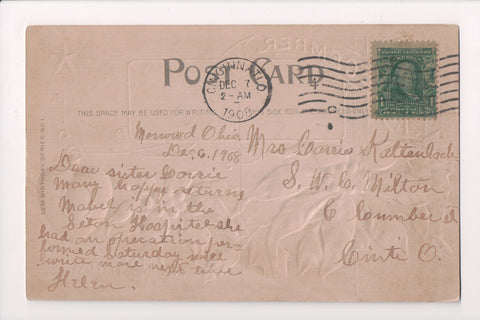 POST CARD
CINCINNATI, O.
DEC 7
2-AM
1908
4
THIS SPACE MAY BE USED FOR WRITING
GEM BIRTHDAY SERIES NO.
Norwood Ohio.
Dec, 6, 1908
Dear sister Carrie
Many happy returns
Mabel is in the
Seton Hospital she
had an operation per-
formed Saturday will
write more next time
Helen.
Mrs Carrie Kattenbach
S. W. C. Milton
& Cumber
Cinti O.